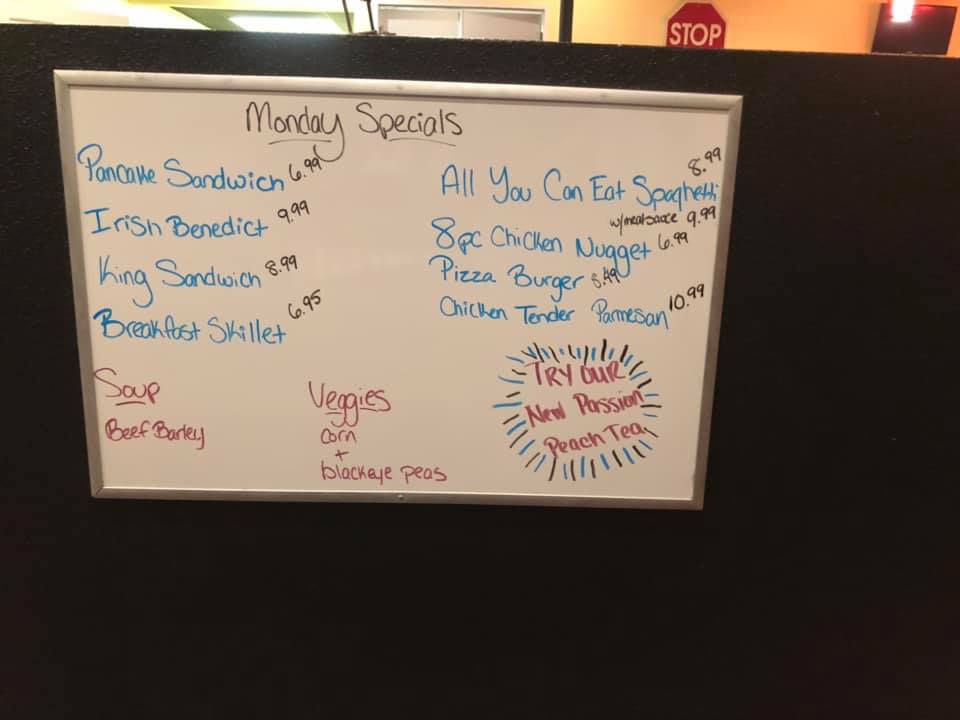 STOP
Monday Specials
Pancake Sandwich 6.99
Irish Benedict 9.99
King Sandwich 8.99
Breakfast Skillet 6.95
All You Can Eat Spaghetti 8.99
w/meatsauce 9.99
8pc Chicken Nugget 6.99
Pizza Burger 8.49
Chicken Tender Parmesan 10.99
Soup
Beef Barley
Veggies
corn
+
blackeye peas
TRY OUR
New Passion
Peach Tea